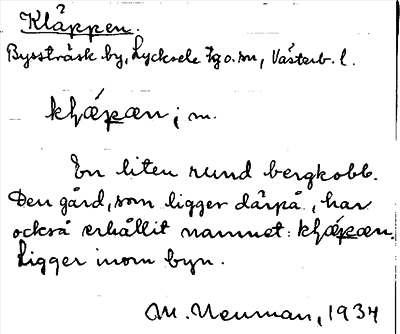 Kläppen.
Byssträsk by, Lycksele tgo.sn, Västerb. l.
kḷǽpæn; m.
En liten rund bergkobb.
Den gård, som ligger därpå, har
också erhållit namnet: kḷǽpæn.
Ligger inom byn.
M. Neuman, 1934